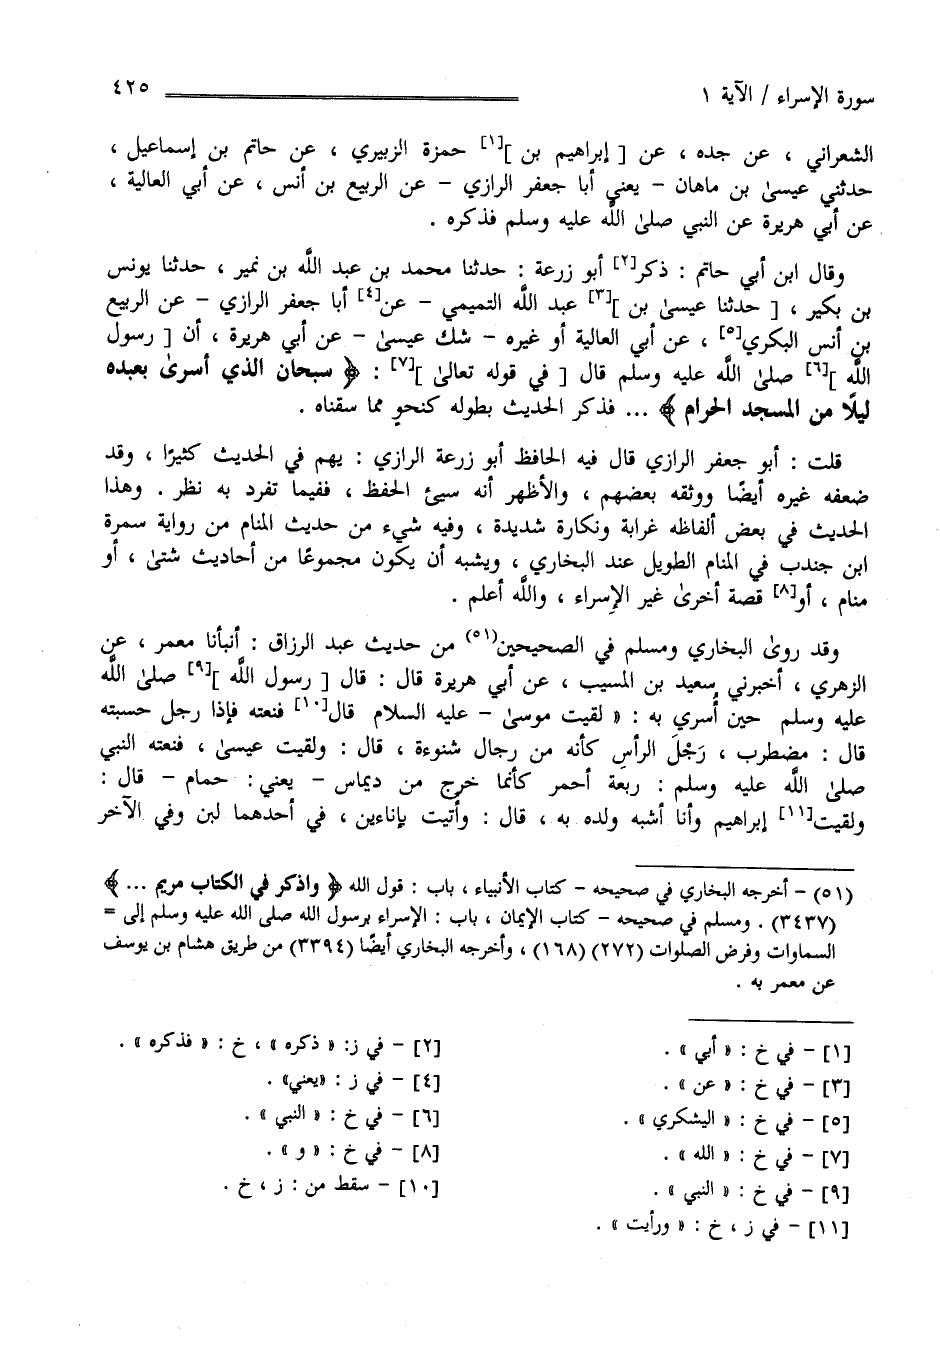 سورة الإسراء / الآية ١ ٤٢٥
الشعراني ، عن جده ، عن [ إبراهيم بن ][١] حمزة الزبيري ، عن حاتم بن إسماعيل ،
حدثني عيسىٰ بن ماهان – يعني أبا جعفر الرازي – عن الربيع بن أنس ، عن أبي العالية ،
عن أبي هريرة عن النبي صلىٰ اللَّه عليه وسلم فذكره .
وقال ابن أبي حاتم : ذكر[٢] أبو زرعة : حدثنا محمد بن عبد اللَّه بن نمير ، حدثنا يونس
بن بكير ، [ حدثنا عيسىٰ بن ][٣] عبد اللَّه التميمي – عن[٤] أبا جعفر الرازي – عن الربيع
بن أنس البكري[٥] ، عن أبي العالية أو غيره – شك عيسىٰ – عن أبي هريرة ، أن [ رسول
اللَّه ][٦] صلىٰ اللَّه عليه وسلم قال [ في قوله تعالىٰ ][٧] : ﴿ سبحان الذي أسرىٰ بعبده
ليلًا من المسجد الحرام ﴾ ... فذكر الحديث بطوله كنحوٍ مما سقناه .
قلت : أبو جعفر الرازي قال فيه الحافظ أبو زرعة الرازي : يهم في الحديث كثيرًا ، وقد
ضعفه غيره أيضًا ووثقه بعضهم ، والأظهر أنه سيئ الحفظ ، ففيما تفرد به نظر . وهذا
الحديث في بعض ألفاظه غرابة ونكارة شديدة ، وفيه شيء من حديث المنام من رواية سمرة
ابن جندب في المنام الطويل عند البخاري ، ويشبه أن يكون مجموعًا من أحاديث شتىٰ ، أو
منام ، أو[٨] قصة أخرىٰ غير الإسراء ، واللَّه أعلم .
وقد روىٰ البخاري ومسلم في الصحيحين(٥١) من حديث عبد الرزاق : أنبأنا معمر ، عن
الزهري ، أخبرني سعيد بن المسيب ، عن أبي هريرة قال : قال [ رسول اللَّه ][٩] صلىٰ اللَّه
عليه وسلم حين أُسري به : « لقيت موسىٰ – عليه السلام قال[١٠] فنعته فإذا رجل حسبته
قال : مضطرب ، رَجْلَ الرأسِ كأنه من رجال شنوءة ، قال : ولقيت عيسىٰ ، فنعته النبي
صلىٰ اللَّه عليه وسلم : ربعة أحمر كأنما خرج من ديماس – يعني : حمام – قال :
ولقيت[١١] إبراهيم وأنا أشبه ولده به ، قال : وأُتيت بإناءين ، في أحدهما لبن وفي الآخر
(٥١) – أخرجه البخاري في صحيحه – كتاب الأنبياء ، باب : قول الله ﴿ واذكر في الكتاب مريم ... ﴾
(٣٤٣٧) . ومسلم في صحيحه – كتاب الإيمان ، باب : الإسراء برسول الله صلى الله عليه وسلم إلى =
السماوات وفرض الصلوات (٢٧٢) (١٦٨) ، وأخرجه البخاري أيضًا (٣٣٩٤) من طريق هشام بن يوسف
عن معمر به .
[١] – في خ : « أبي » . [٢] – في ز: « ذكره » ، خ : « فذكره » .
[٣] – في خ : « عن » . [٤] – في ز : «يعني» .
[٥] – في خ : « اليشكري » . [٦] – في خ : « النبي » .
[٧] – في خ : « الله » . [٨] – في خ : « و » .
[٩] – في خ : « النبي » . [١٠] – سقط من : ز ، خ .
[١١] – في ز ، خ : « ورأيت » .